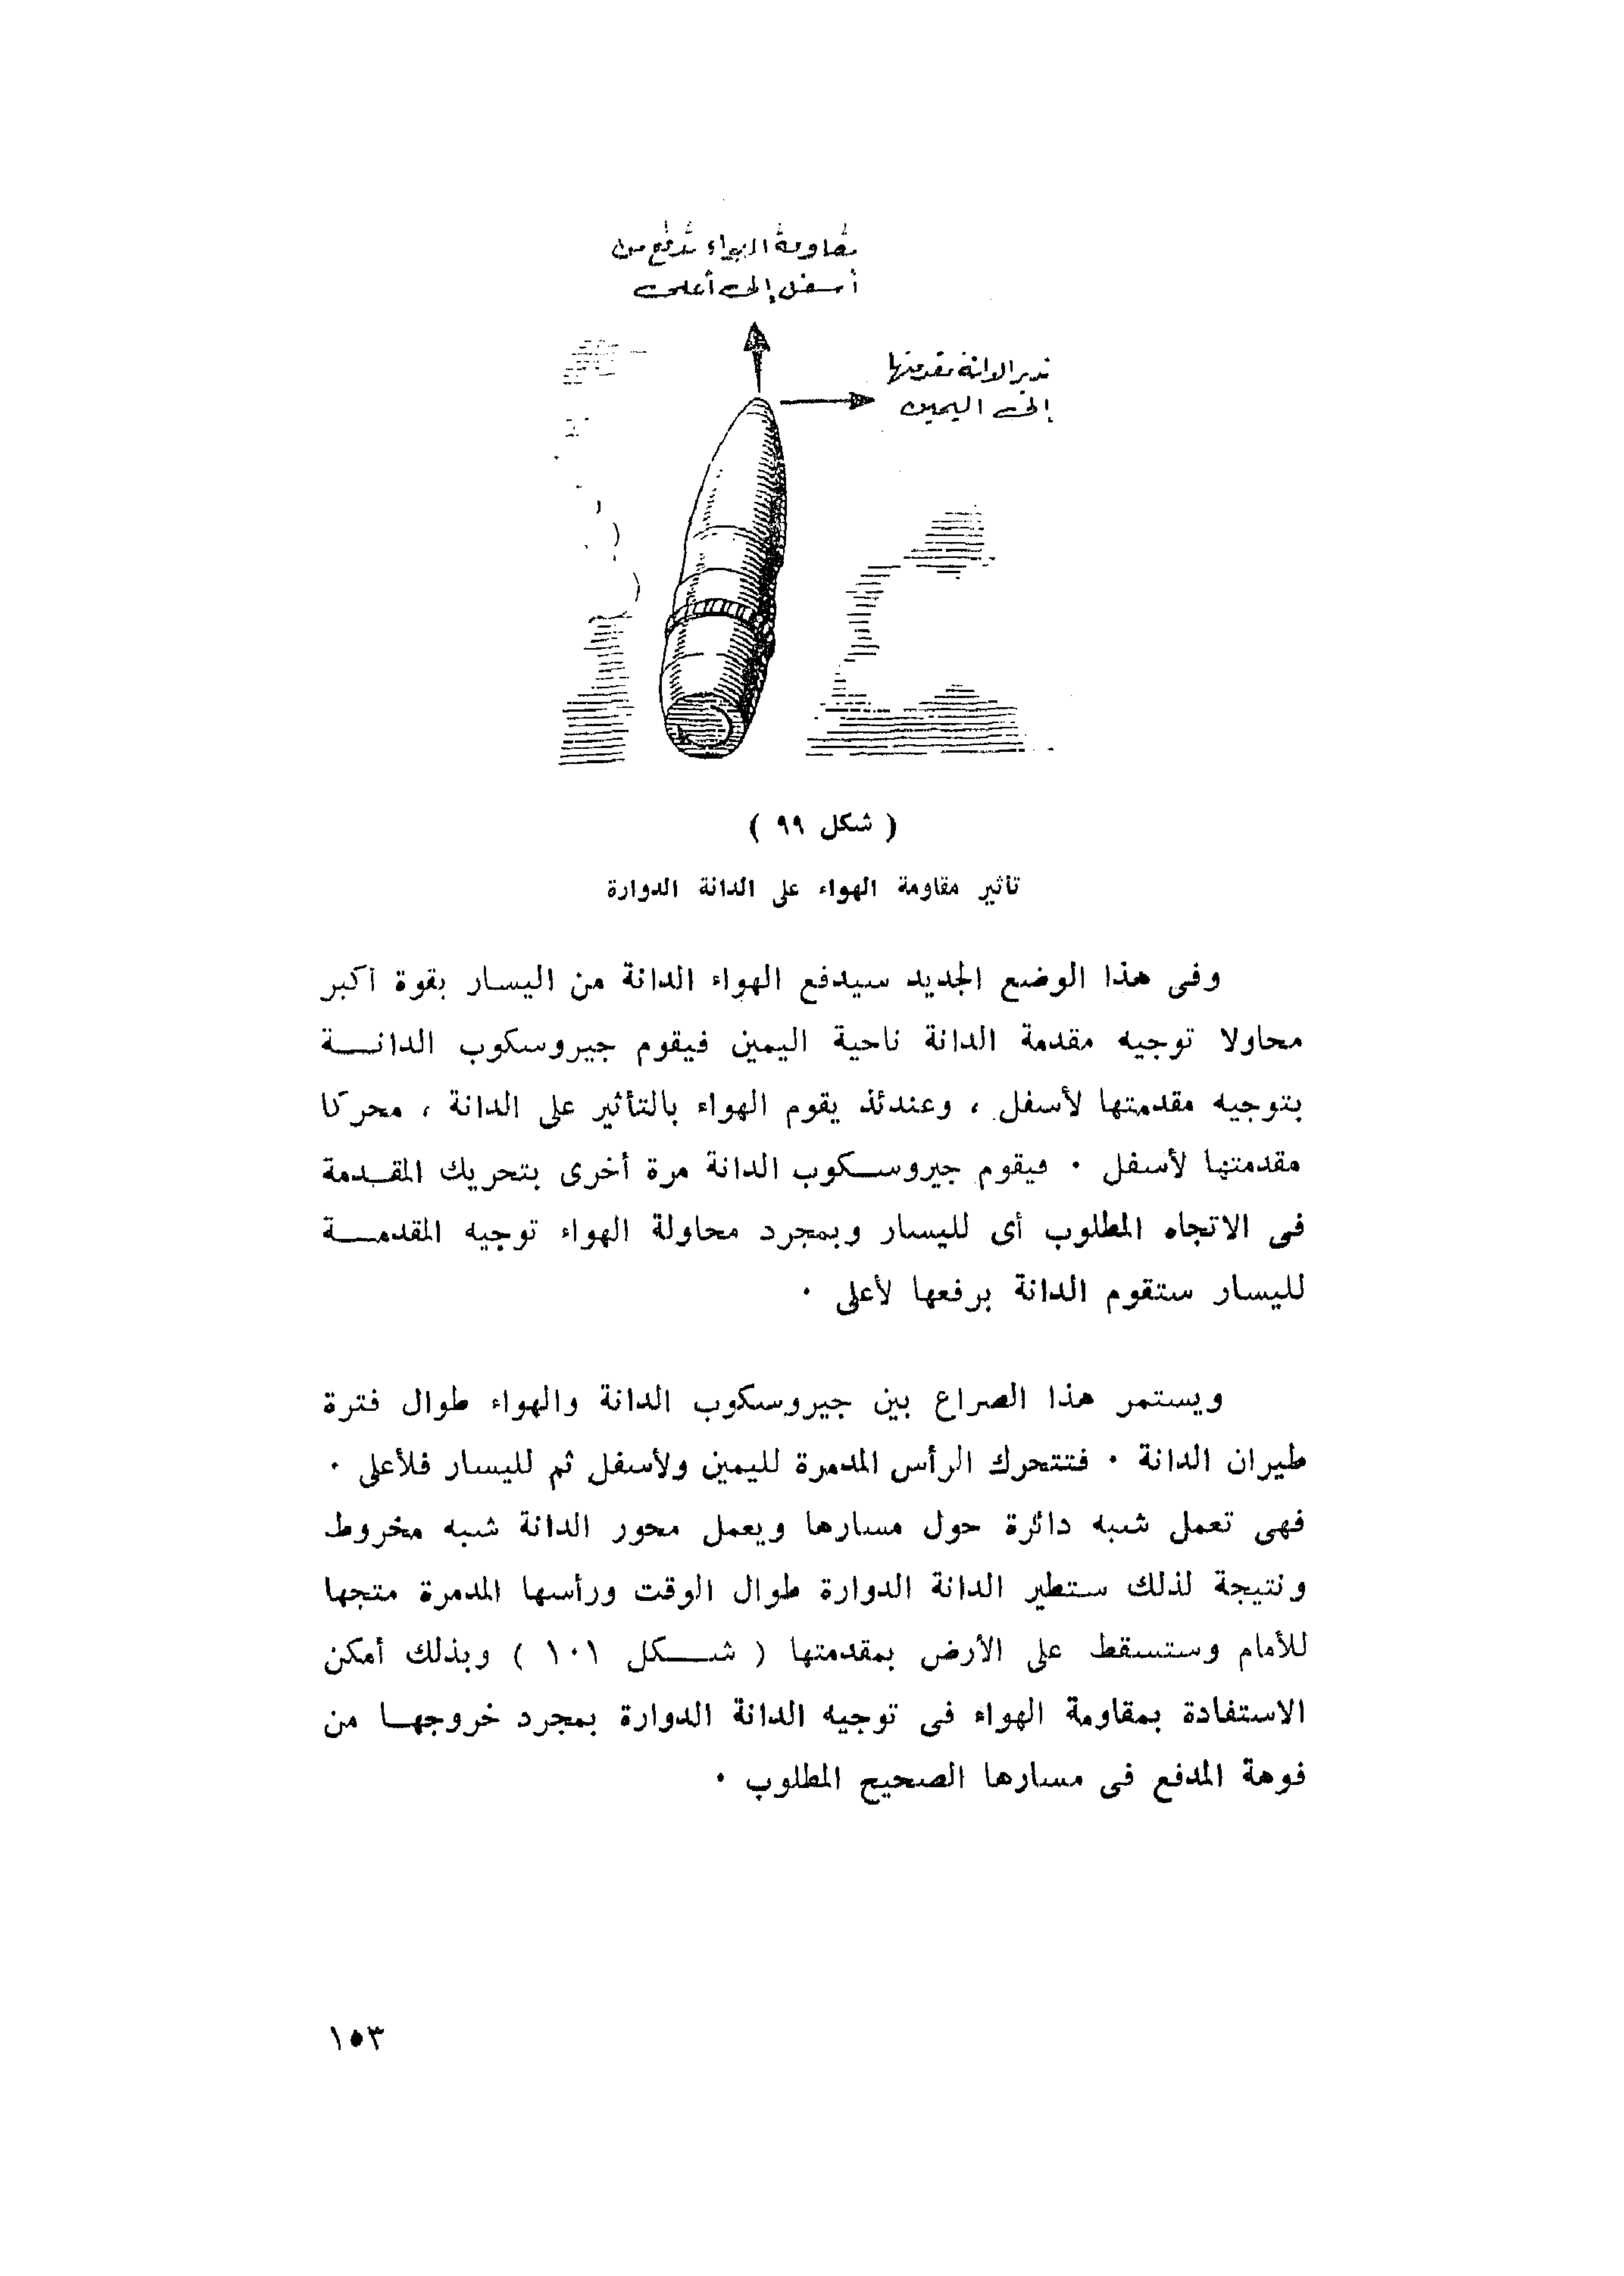 مقاومة الهواء تدفع من
أسفل إلى أعلى
تدير الدانة مقدمتها
إلى اليمين
( شكل ٩٩ )
تأثير مقاومة الهواء على الدانة الدوارة
وفى هذا الوضع الجديد سيدفع الهواء الدانة من اليسار بقوة أكبر
محاولا توجيه مقدمة الدانة ناحية اليمين فيقوم جيروسكوب الدانـــة
بتوجيه مقدمتها لأسفل ، وعندئذ يقوم الهواء بالتأثير على الدانة ، محركا
مقدمتها لأسفل ٠ فيقوم جيروســكوب الدانة مرة أخرى بتحريك المقــدمة
فى الاتجاه المطلوب أى لليسار وبمجرد محاولة الهواء توجيه المقدمـــة
لليسار ستقوم الدانة برفعها لأعلى ٠
ويستمر هذا الصراع بين جيروسكوب الدانة والهواء طوال فترة
طيران الدانة ٠ فتتحرك الرأس المدمرة لليمين ولأسفل ثم لليسار فلأعلى ٠
فهى تعمل شبه دائرة حول مسارها ويعمل محور الدانة شبه مخروط
ونتيجة لذلك ستطير الدانة الدوارة طوال الوقت ورأسها المدمرة متجها
للأمام وستسقط على الأرض بمقدمتها ( شـــكل ١٠١ ) وبذلك أمكن
الاستفادة بمقاومة الهواء فى توجيه الدانة الدوارة بمجرد خروجهــا من
فوهة المدفع فى مسارها الصحيح المطلوب ٠
١٥٣